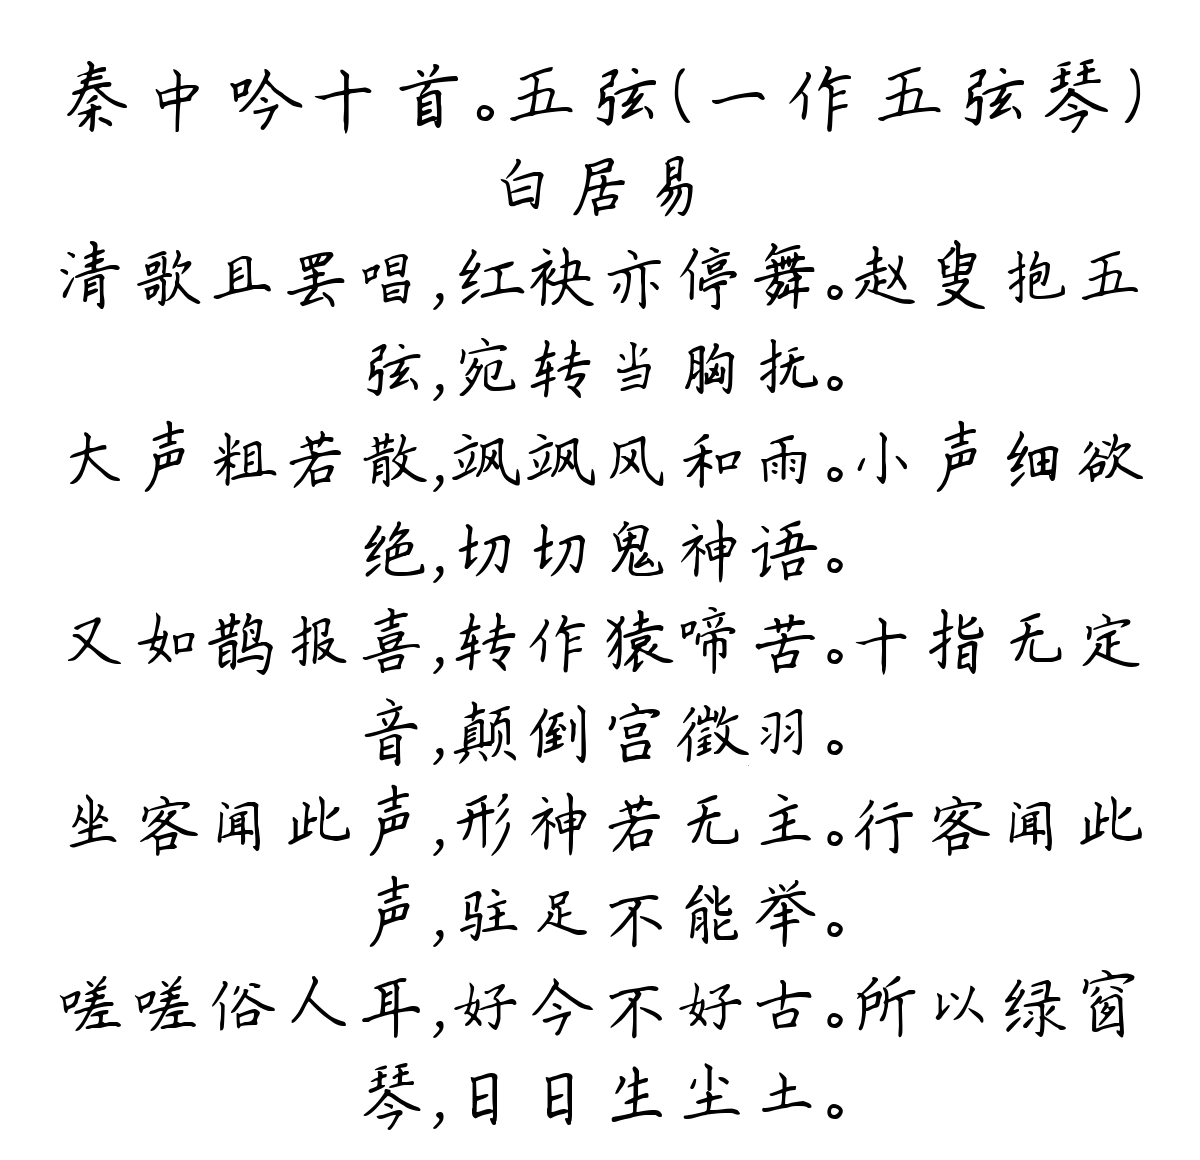 秦中吟十首。五弦(一作五弦琴)
白居易
清歌且罢唱,红袂亦停舞。赵叟抱五
弦,宛转当胸抚。
大声粗若散,飒飒风和雨。小声细欲
绝,切切鬼神语。
又如鹊报喜,转作猿啼苦。十指无定
音,颠倒宫徵羽。
坐客闻此声,形神若无主。行客闻此
声,驻足不能举。
嗟嗟俗人耳,好今不好古。所以绿窗
琴,日日生尘土。